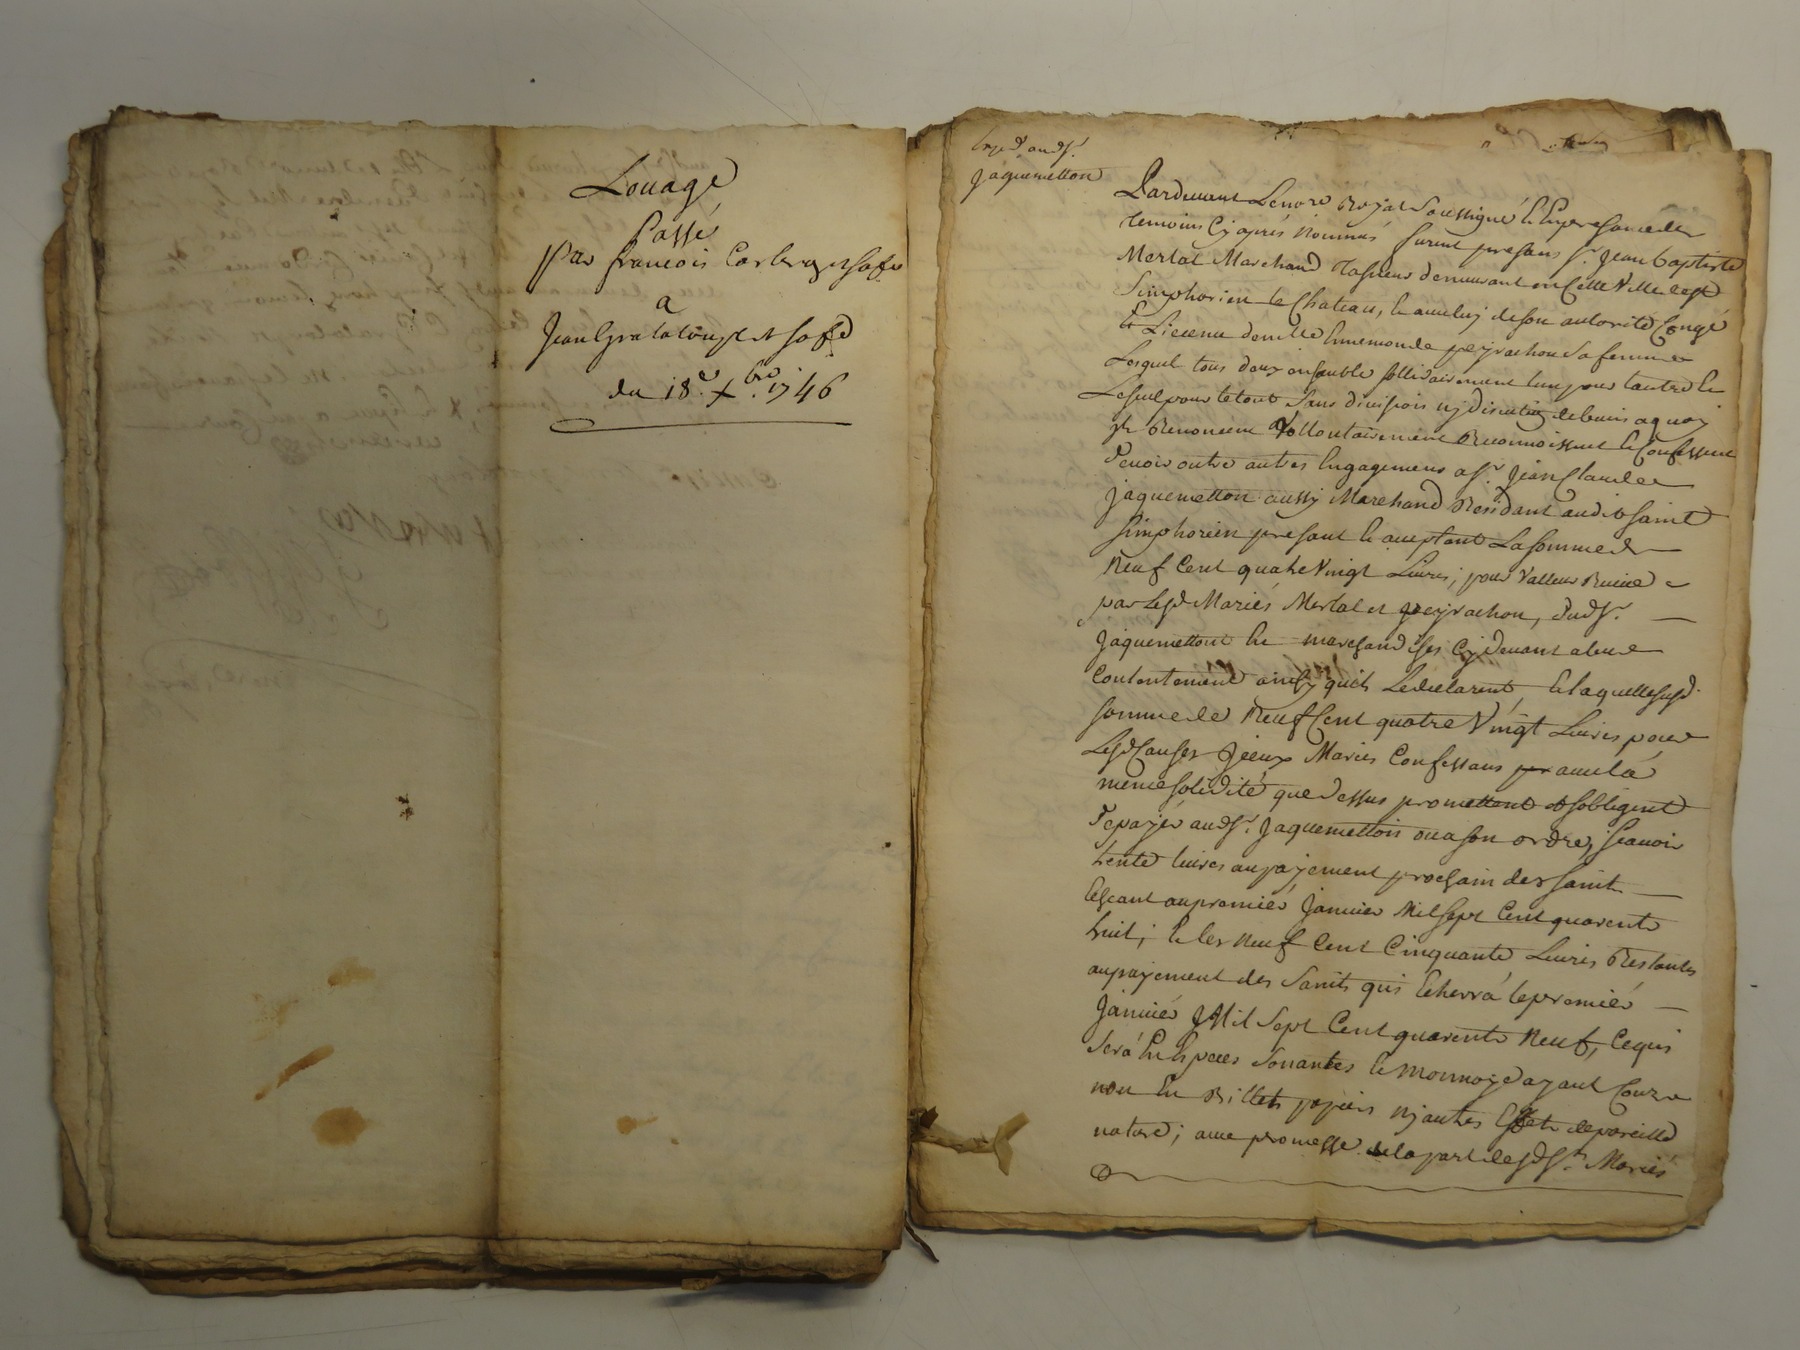 Louage
Passé
Par francois
a
Jean Grataloup et sa fe
du 18e. Xbre. 1746
Exped audsr.
Jaquemetton
Pardevant Lenore Royal Soussigné Et En presance des
temoins Cy aprés Nommés furent presans sr. Jean baptiste
Merlat Marchand demeurant en Cette Ville de st
Simphorien le Chateau, de son autorité Congé
Et Licence demlle Ennemonde peyrachon Sa femme
Lesquel tous deux ensemble sollidairement lun pour lautre Et
Le seul pour le tout Sans division ny discution de biens a quoy
ils Renoncent Vollontairement Reconnoissent Et Confessent
Devoir outre autres Engagemens a sr. Jean Claude
Jaquemetton aussy Marchand Residant audit saint
Simphorien presant Et aceptant La somme de
Neuf Cent quatre Vingt Livres; pour Valleur Recüe
par Lesd Mariés Merlat et peyrachon, dudsr.
Jaquemetton En marchandises Cy devant a leur
Contentement ainsy quils Le declarent, Et laquelle susd.
somme de Neuf Cent quatre Vingt Livres pour
Lesd Causes Jceux Mariés Confessans avec la
meme solidité que dessus promettent et sobligent
De payer audsr. Jaquemetton ou a son ordre, scavoir
trente livres au payement prochain des saint
Echeant au premiér Janvier Mil sept Cent quarente
huit; Et les Neuf Cent Cinquante Livres Restantes
au payement des Saints qui Echerrá le premiér
Janviér Mil Sept Cent quarente Neuf, Ce qui
Sera En Especes Sonantes Et Monnoye ayant Cours
non En Billets papiers ny autres Effets de pareille
nature; avec promesse de la part desd srs. Mariés